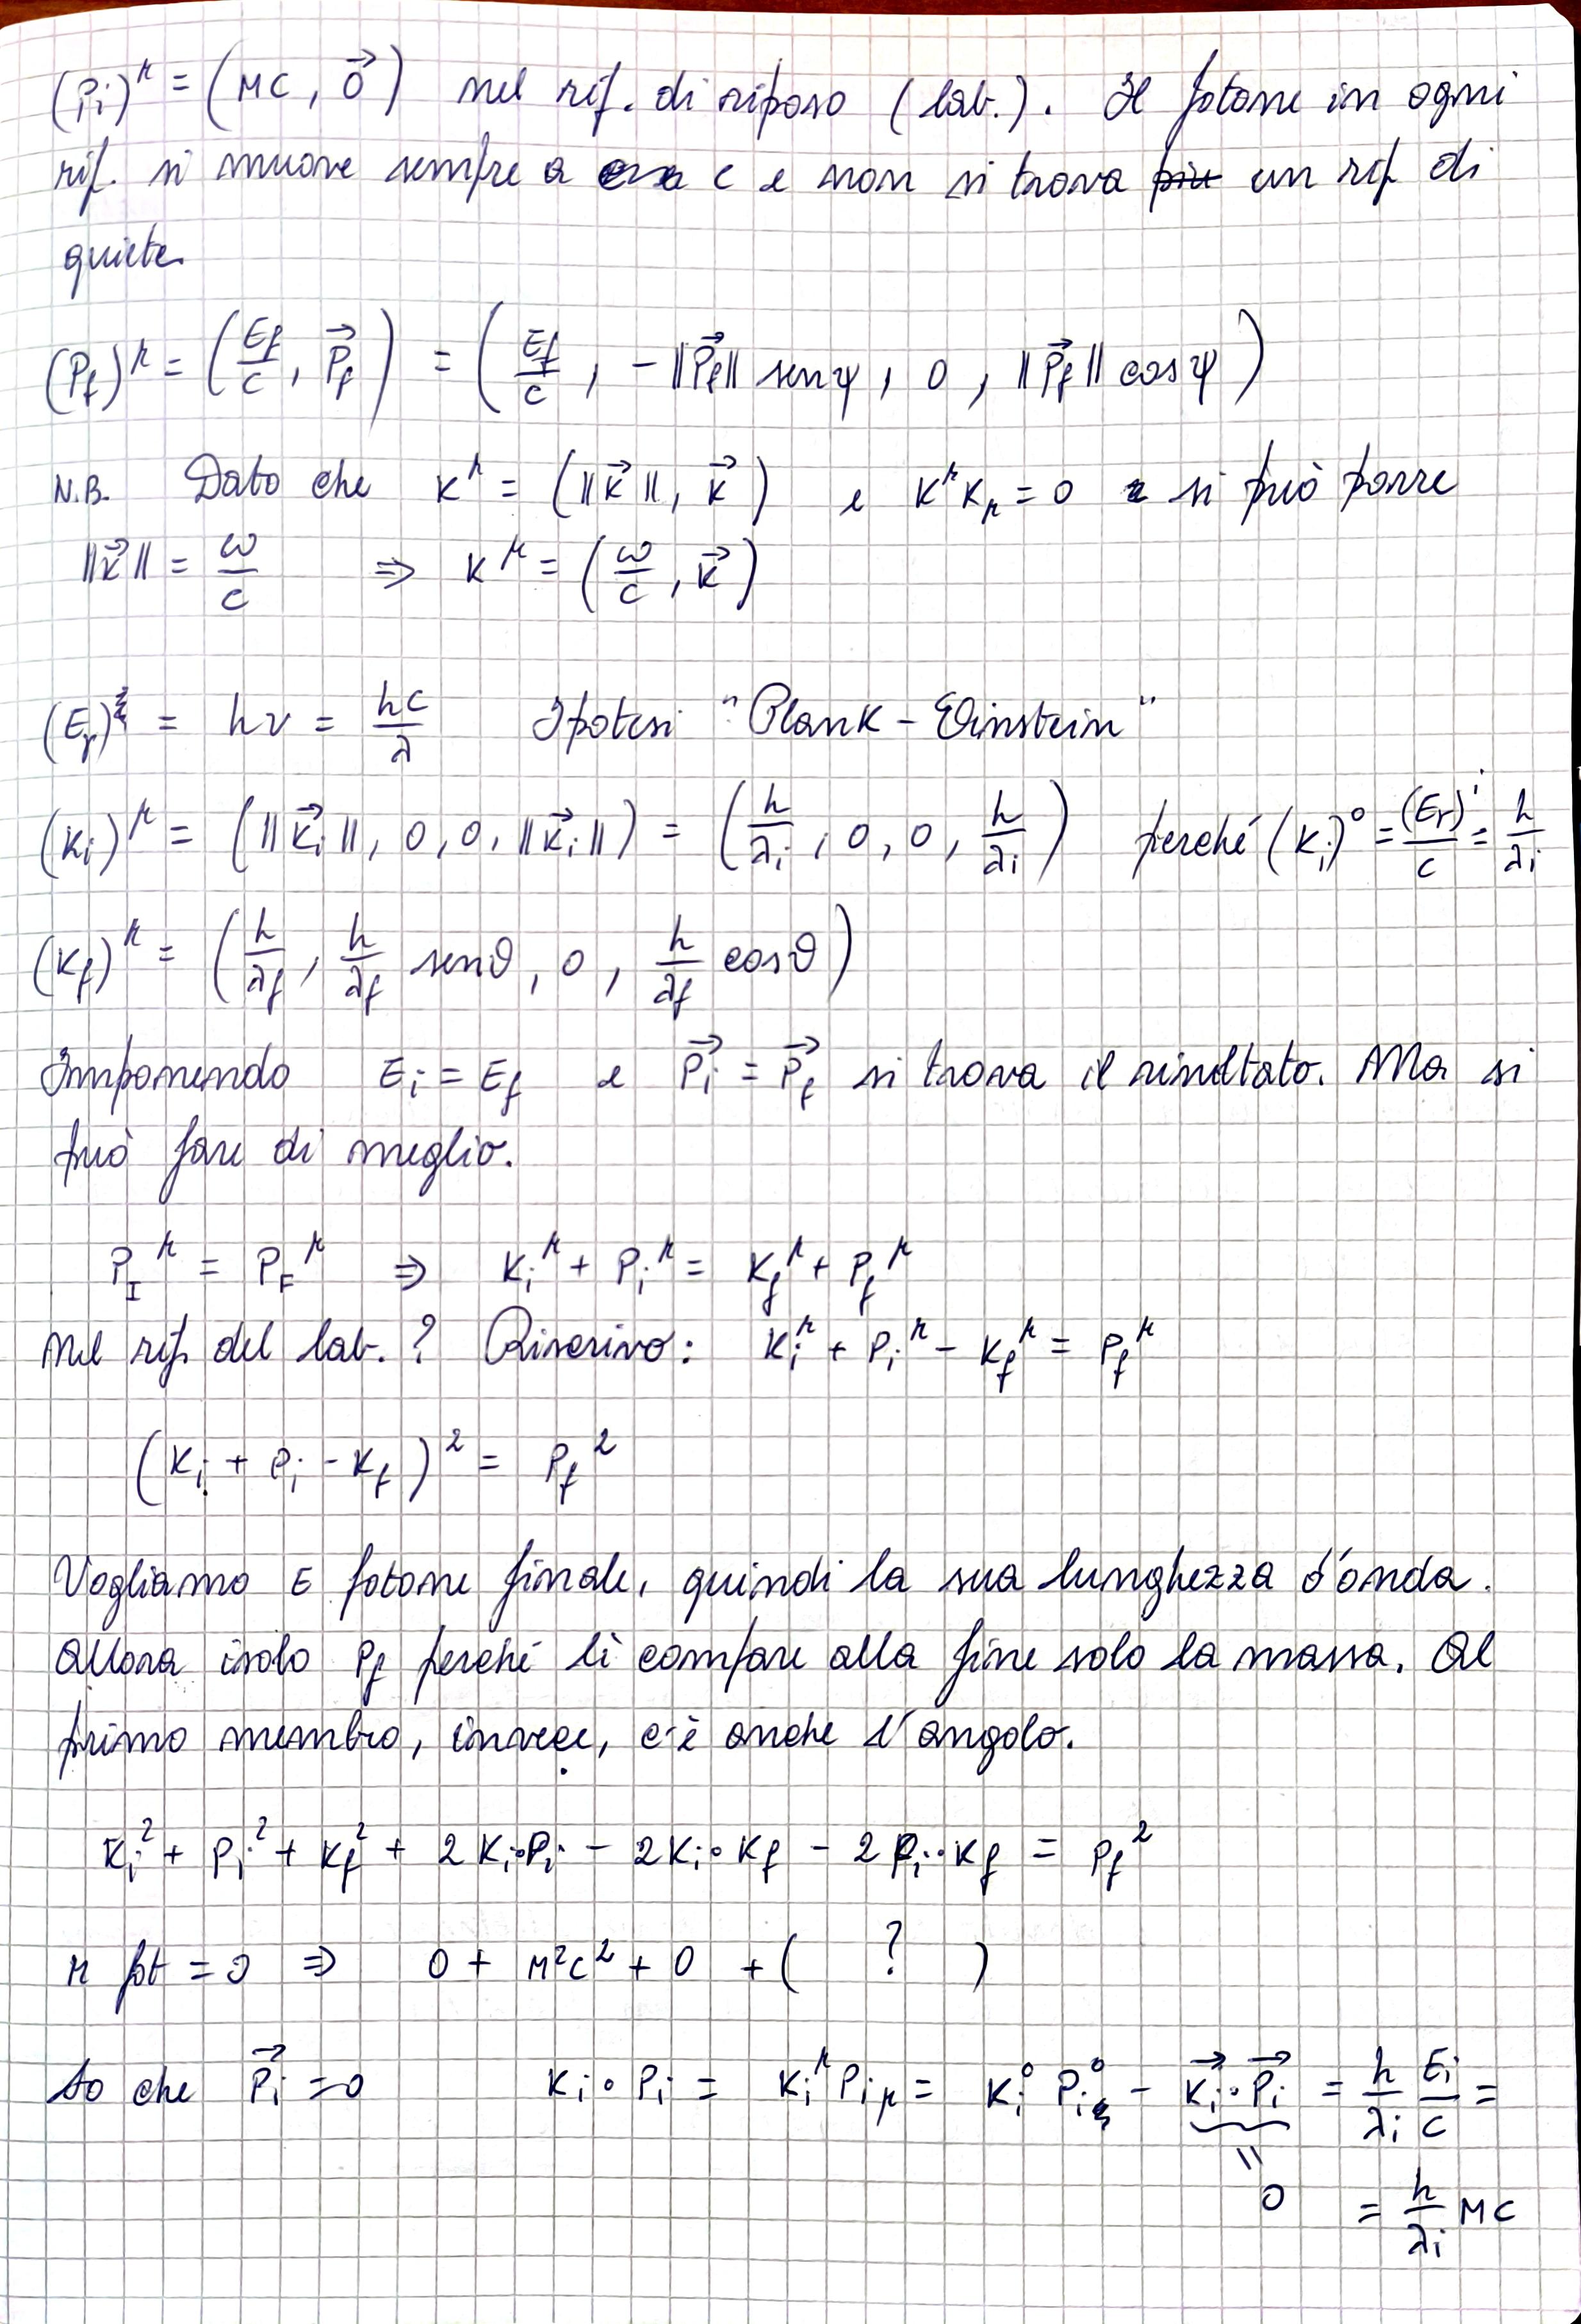 (Pi)^μ = (MC, 0⃗) nel rif. di riposo (lab.). Il fotone in ogni
rif. si muove sempre a c e non si trova più un rif di
quiete.
(Pf)^μ = (Ef/c, P⃗f) = (Ef/c, -||P⃗f|| senψ, 0, ||P⃗f|| cosψ)
N.B. Dato che K^μ = (||K⃗||, K⃗) e K^μ K_μ = 0 si può porre
||K⃗|| = ω/c ⇒ K^μ = (ω/c, K⃗)
(Eγ) = hν = hc/λ Ipotesi "Plank - Einstein"
(Ki)^μ = (||K⃗i||, 0, 0, ||K⃗i||) = (h/λi, 0, 0, h/λi) perché (Ki)^0 = (Eγ)^i/c = h/λi
(Kf)^μ = (h/λf, h/λf senθ, 0, h/λf cosθ)
Imponendo Ei = Ef e P⃗i = P⃗f si trova il risultato. Ma si
può fare di meglio.
P_I^μ = P_F^μ ⇒ Ki^μ + Pi^μ = Kf^μ + Pf^μ
Nel rif. del lab. ? Riscrivo: Ki^μ + Pi^μ - Kf^μ = Pf^μ
(Ki + Pi - Kf)^2 = Pf^2
Vogliamo E fotone finale, quindi la sua lunghezza d'onda.
Allora isolo Pf perché lì compare alla fine solo la massa. Al
primo membro, invece, c'è anche l'angolo.
Ki^2 + Pi^2 + Kf^2 + 2Ki·Pi - 2Ki·Kf - 2Pi·Kf = Pf^2
M fot = 0 ⇒ 0 + M²c² + 0 + ( ? )
So che P⃗i = 0 Ki·Pi = Ki^μ Pi_μ = Ki^0 Pi^0 - K⃗i·P⃗i = h/λi Ei/c =
0 = h/λi MC